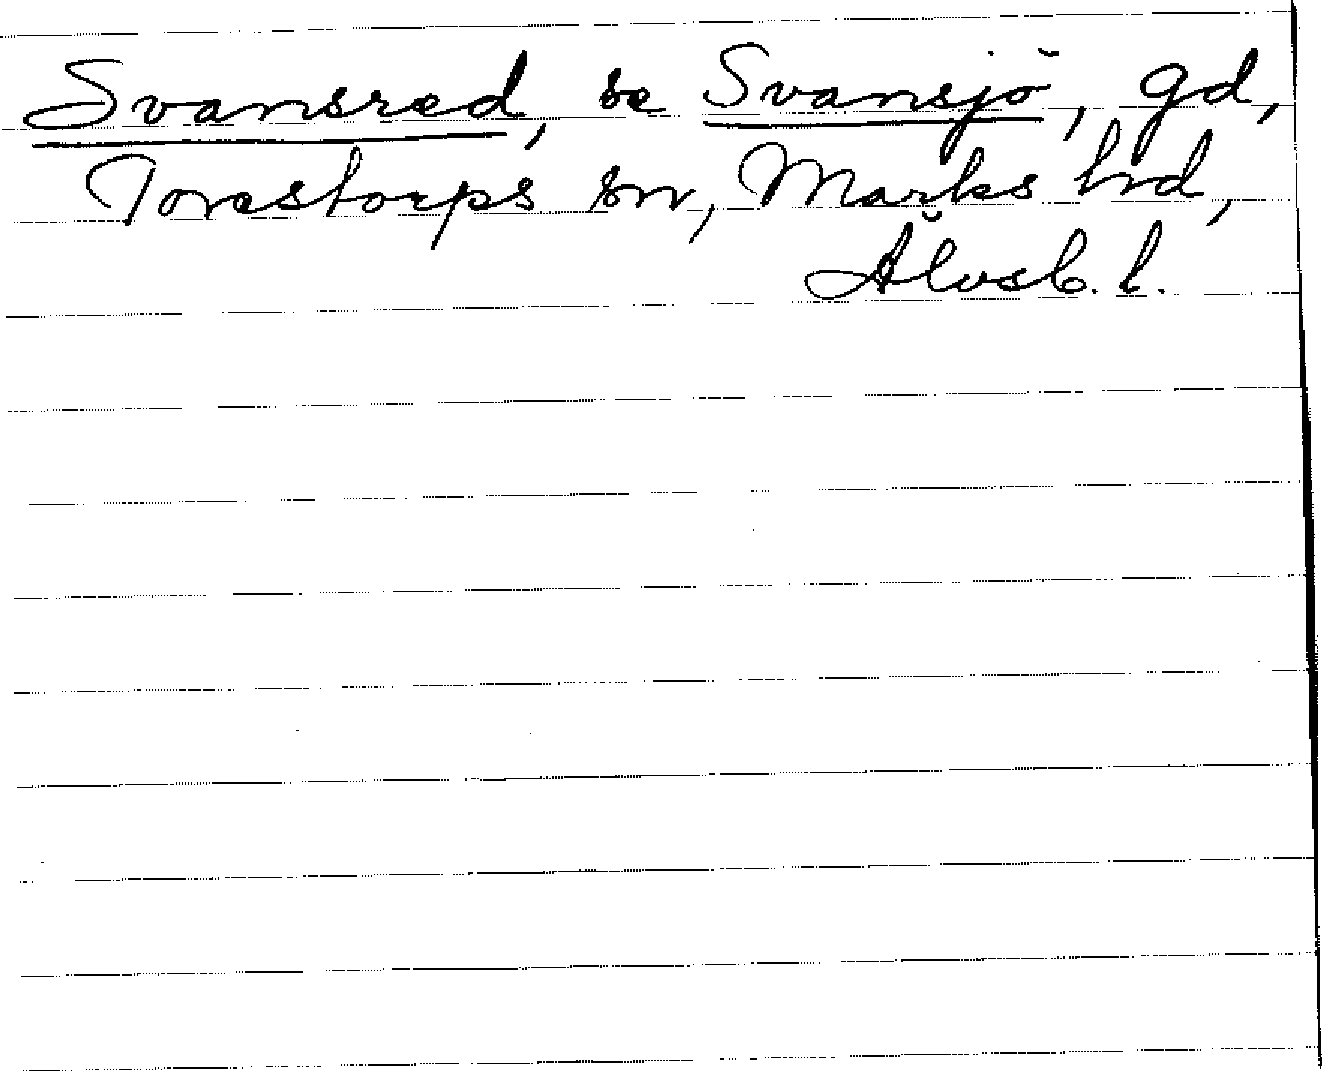 Svansred, se Svansjö, gd,
Torestorps sn, Marks hrd,
Älvsb. l.